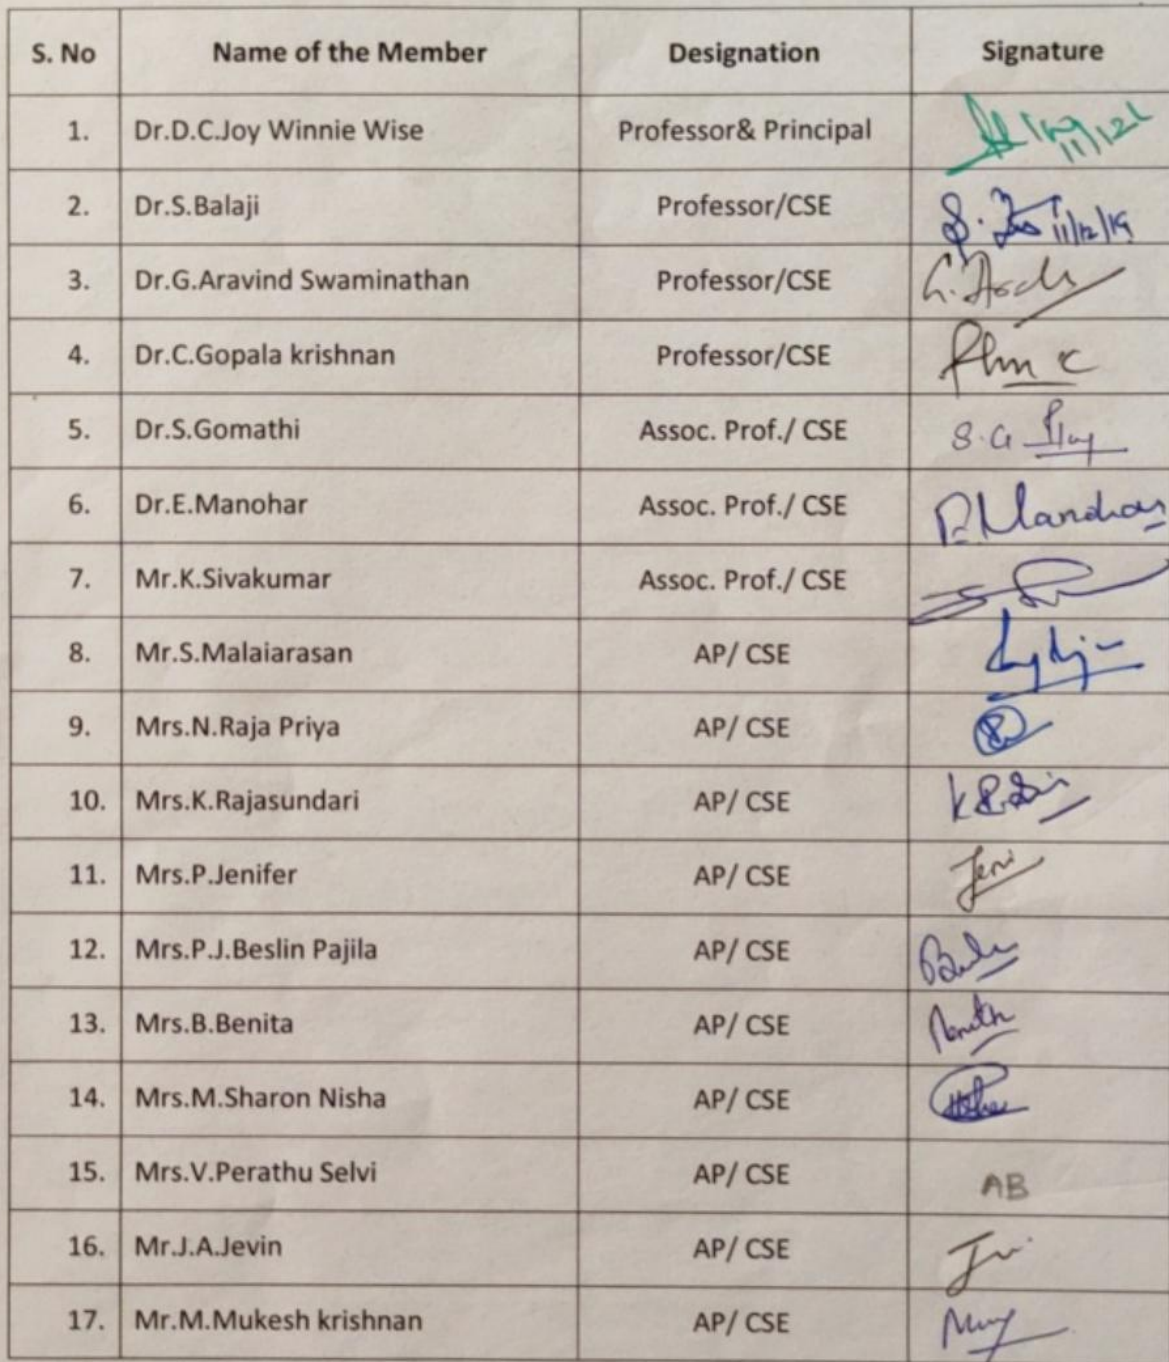 S. No Name of the Member Designation Signature
1. Dr.D.C.Joy Winnie Wise Professor& Principal
2. Dr.S.Balaji Professor/CSE 11/12/19
3. Dr.G.Aravind Swaminathan Professor/CSE
4. Dr.C.Gopala krishnan Professor/CSE
5. Dr.S.Gomathi Assoc. Prof./ CSE
6. Dr.E.Manohar Assoc. Prof./ CSE E.Manohar
7. Mr.K.Sivakumar Assoc. Prof./ CSE
8. Mr.S.Malaiarasan AP/ CSE
9. Mrs.N.Raja Priya AP/ CSE
10. Mrs.K.Rajasundari AP/ CSE
11. Mrs.P.Jenifer AP/ CSE Jeni
12. Mrs.P.J.Beslin Pajila AP/ CSE
13. Mrs.B.Benita AP/ CSE
14. Mrs.M.Sharon Nisha AP/ CSE
15. Mrs.V.Perathu Selvi AP/ CSE AB
16. Mr.J.A.Jevin AP/ CSE
17. Mr.M.Mukesh krishnan AP/ CSE